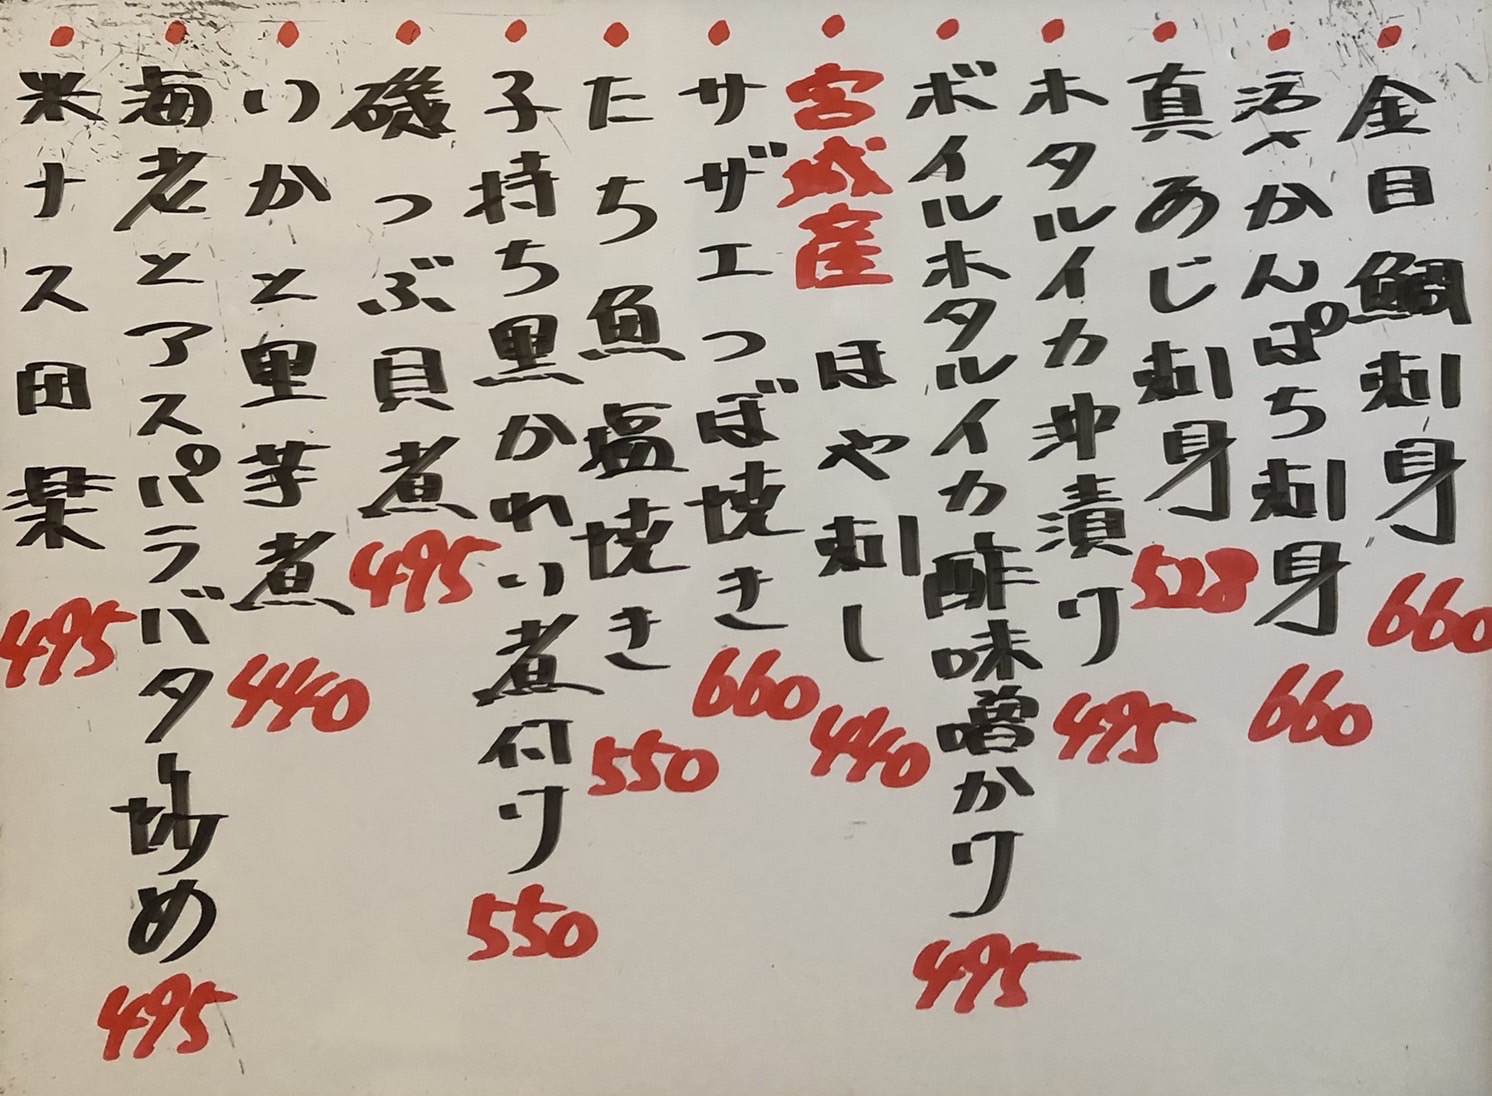 金目鯛刺身 660
活〆かんぱち刺身 660
真あじ刺身 528
ホタルイカ沖漬り 495
ボイルホタルイカ酢味噌かり 495
宮城産 ほや刺し 440
サザエつぼ焼き 660
たち魚塩焼き 550
子持ち黒かれい煮付り 550
磯つぶ貝煮 495
いかと里芋煮 440
海老とアスパラバター炒め 495
米ナス田楽 495